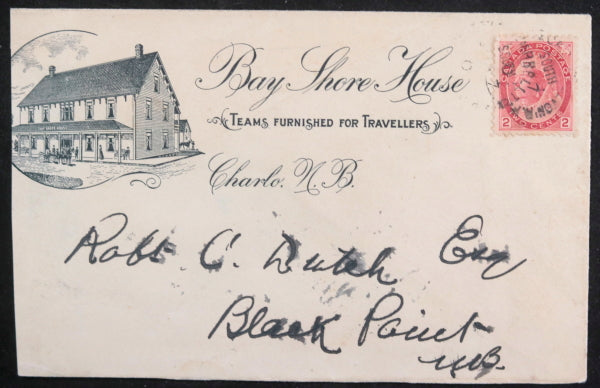 Bay Shore House
TEAMS FURNISHED FOR TRAVELLERS
Charlo. N. B.
BAY SHORE HOUSE
POSTAGE
2 TWO CENTS 2
Robt. C. Dutch Esq
Black Point
N.B.